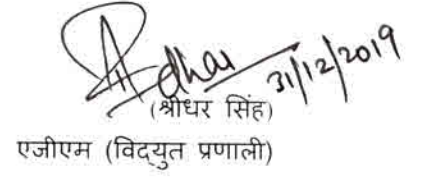 31/12/2019
(श्रीधर सिंह)
एजीएम (विद्युत प्रणाली)